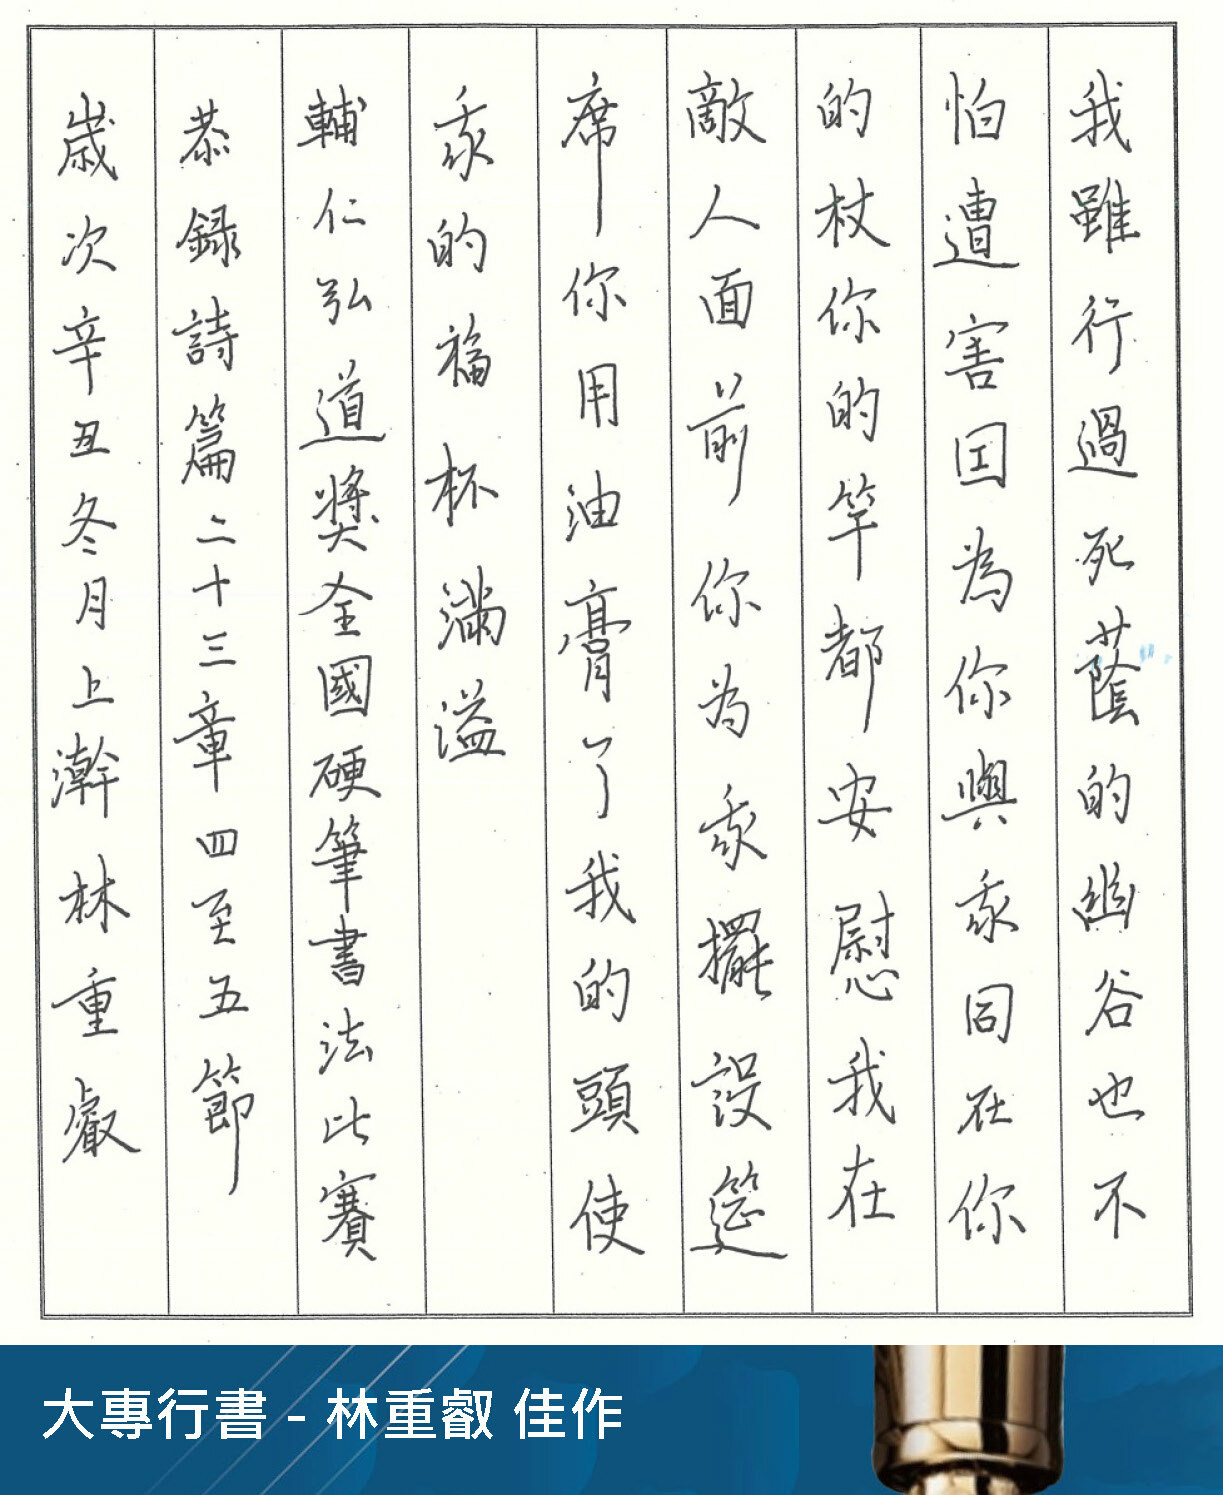 我雖行過死蔭的幽谷也不
怕遭害因為你與我同在你
的杖你的竿都安慰我在
敵人面前你為我擺設筵
席你用油膏了我的頭使
我的福杯滿溢
輔仁弘道獎全國硬筆書法比賽
恭錄詩篇二十三章四至五節
歲次辛丑冬月上澣林重叡
大專行書 - 林重叡 佳作